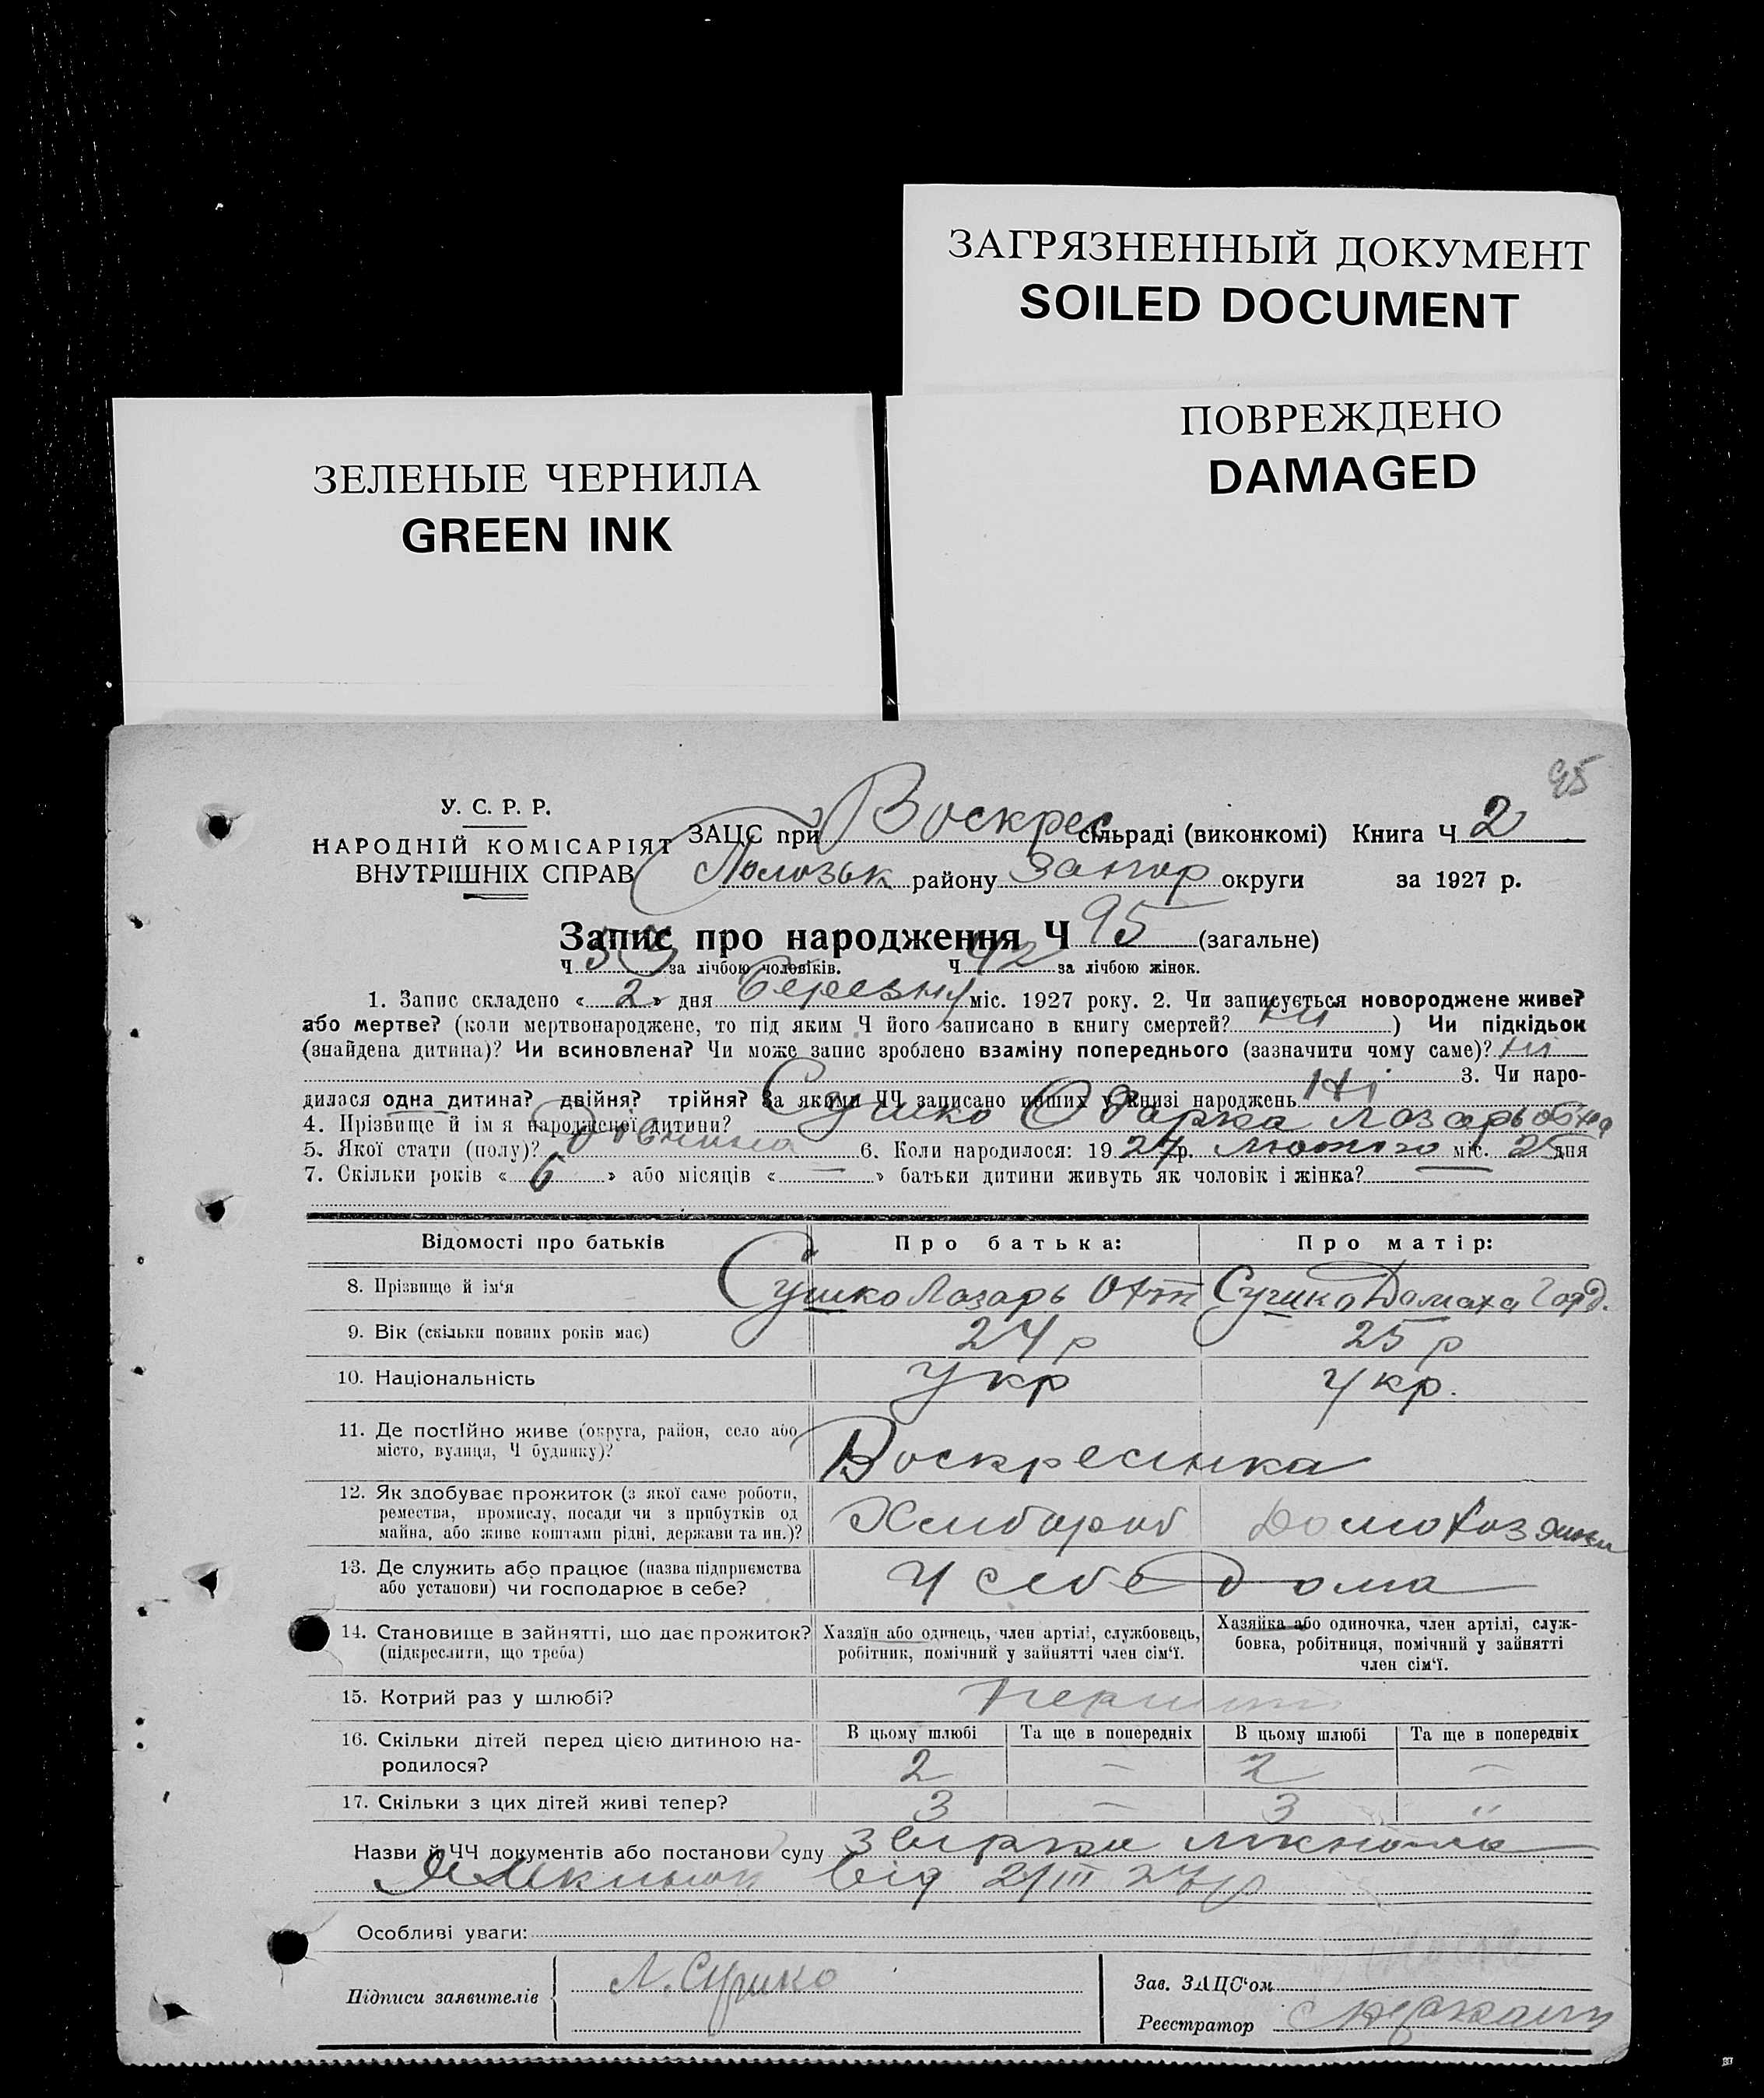 ЗАГРЯЗНЕННЫЙ ДОКУМЕНТ
SOILED DOCUMENT
ПОВРЕЖДЕНО
DAMAGED
ЗЕЛЕНЫЕ ЧЕРНИЛА
GREEN INK
95
У. С. Р. Р.
НАРОДНІЙ КОМІСАРІЯТ
ВНУТРІШНІХ СПРАВ
ЗАЦС при Воскрес сільраді (виконкомі) Книга Ч 2
Пологзьк району Запор округи за 1927 р.
Запис про народження Ч 95 (загальне)
Ч 53 за лічбою чоловіків. Ч 42 за лічбою жінок.
1. Запис складено « 2 » дня березня міс. 1927 року. 2. Чи записується новороджене живе?
або мертве? (коли мертвонароджене, то під яким Ч його записано в книгу смертей? ні ) Чи підкідьок
(знайдена дитина)? Чи всиновлена? Чи може запис зроблено взаміну попереднього (зазначити чому саме)? ні
3. Чи наро-
дилася одна дитина? двійня? трійня? За якими ЧЧ записано инших у книзі народжень ні
4. Прізвище й ім я народженої дитини? Сушко Одарка Лазарьовна
5. Якої стати (полу)? дівчина 6. Коли народилося: 19 27 р. лютого міс. 25 дня
7. Скільки років « 6 » або місяців « — » батьки дитини живуть як чоловік і жінка?
Відомості про батьків
Про батька:
Про матір:
8. Прізвище й ім‘я Сушко Лазарь Сушко Домаха Горд.
9. Вік (скільки повних років має) 24 р 25 р
10. Національність Укр Укр.
11. Де постійно живе (округа, район, село або
місто, вулиця, Ч будинку)? Воскресинка
12. Як здобуває прожиток (з якої саме роботи,
ремества, промислу, посади чи з прибутків од
майна, або живе коштами рідні, держави та ин.)? Хлибороб Домохозяйки
13. Де служить або працює (назва підприємства
або установи) чи господарює в себе? У себе дома
14. Становище в зайнятті, що дає прожиток?
(підкреслити, що треба)
Хазяїн або одинець, член артілі, службовець,
робітник, помічний у зайнятті член сім‘ї.
Хазяйка або одиночка, член артілі, служ-
бовка, робітниця, помічний у зайнятті
член сім‘ї.
15. Котрий раз у шлюбі?
16. Скільки дітей перед цією дитиною на-
родилося?
В цьому шлюбі Та ще в попередніх В цьому шлюбі Та ще в попередніх
2 — 2 —
17. Скільки з цих дітей живі тепер? 3 — 3 "
Назви й ЧЧ документів або постанови суду
від 2/III 27 р
Особливі уваги:
Підписи заявителів Л. Сушко
Зав. ЗАЦС‘ом
Реєстратор